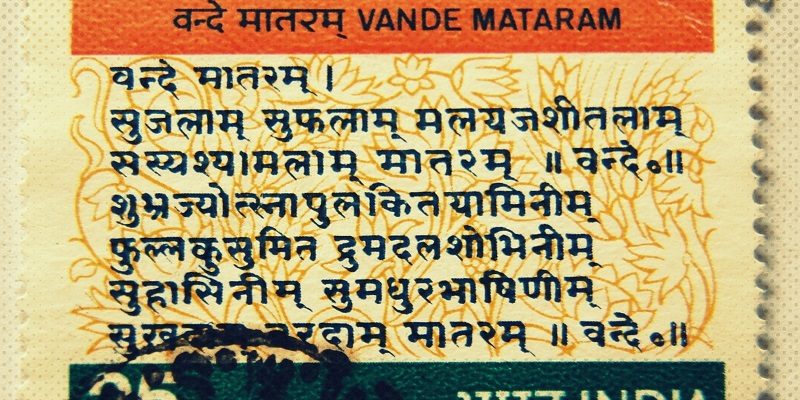 वन्दे मातरम् VANDE MATARAM
वन्दे मातरम् ।
सुजलाम् सुफलाम् मलयजशीतलाम्
सस्यश्यामलाम् मातरम् ॥ वन्दे०॥
शुभ्रज्योत्स्नापुलकितयामिनीम्
फुल्लकुसुमित द्रुमदलशोभिनीम्
सुहासिनीम् सुमधुरभाषिणीम्
मातरम् ॥ वन्दे०॥
भारत INDIA